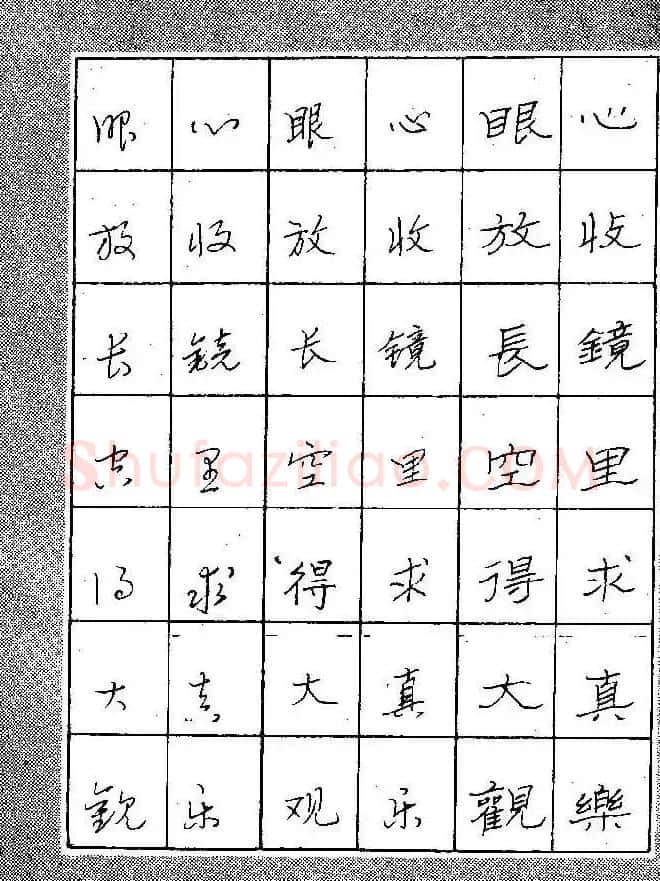 心收鏡里求真樂
眼放長空得大觀
心收镜里求真乐
眼放长空得大观
心收镜里求真乐
眼放长空得大观
Shufaziliao.COM